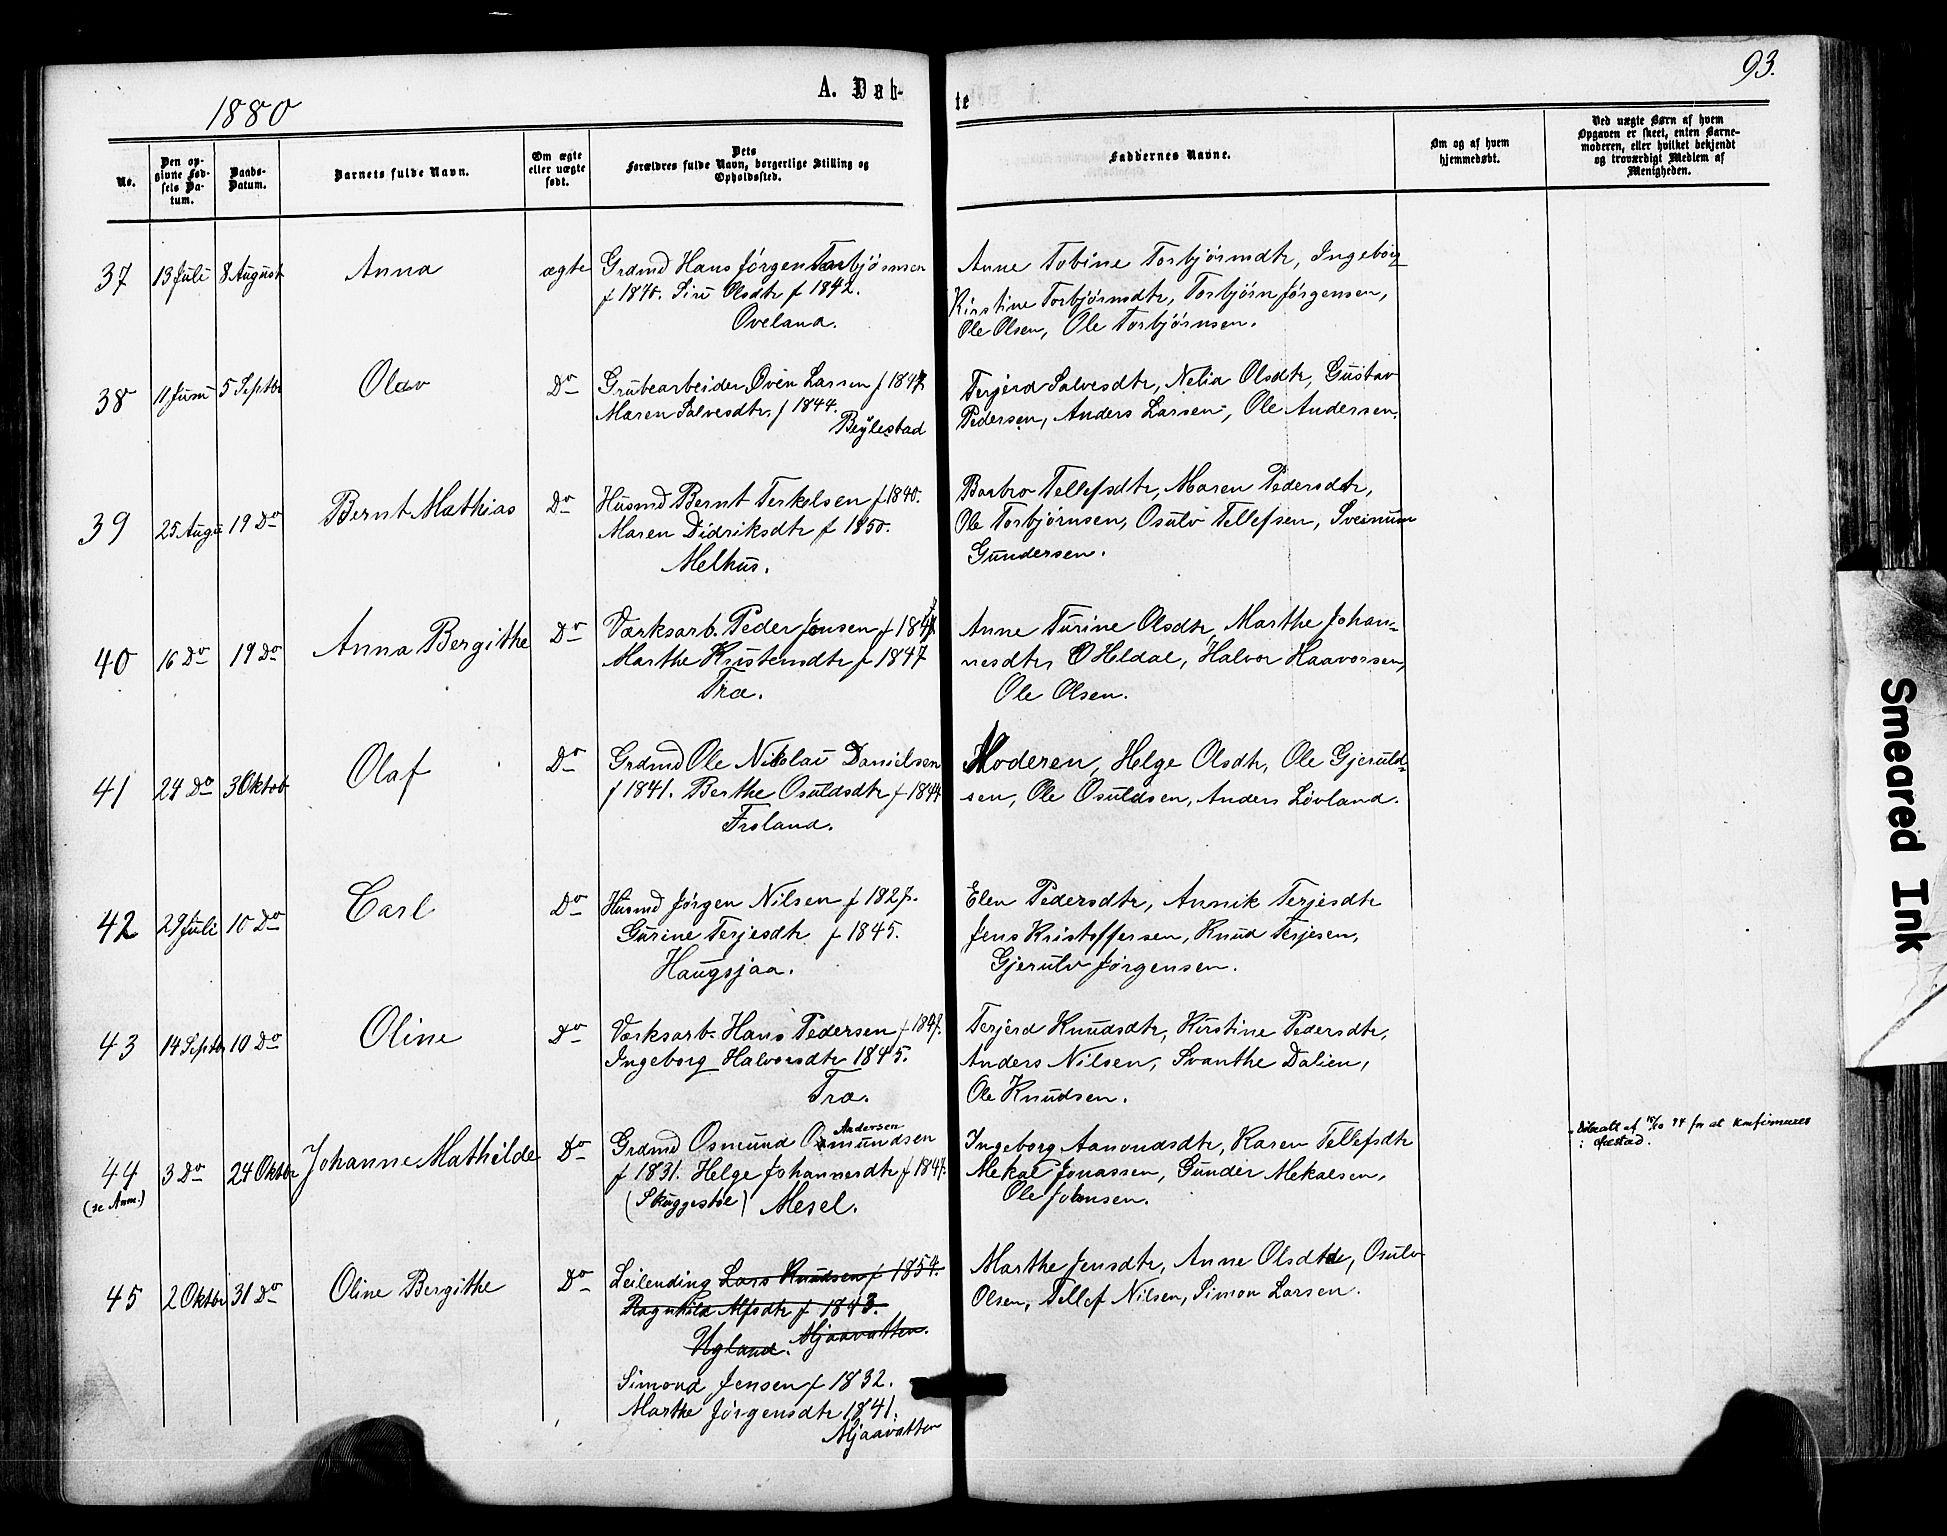 93.
1880
A. Døb-
te
No.
Den op-
givne Fød-
sels Da-
tum.
Daabs-
Datum.
Barnets fulde Navn.
Om ægte
eller uægte
født.
Dets
Forældres fulde Navn, borgerlige Stilling og
Opholdssted.
Faddernes Navne.
Om og af hvem
hjemmedøbt.
Ved uægte Børn af hvem
Opgaven er skeet, enten Barne-
moderen, eller hvilket bekjendt
og troværdigt Medlem af
Menigheden.
37 13 Juli 8 August Anna ægte Grdmd Hans Jørgen Torbjørnsen
f 1840. Siri Olsdtr f 1842.
Oveland.
Anne Tobine Torbjørnsdtr, Ingeborg
Kirstine Torbjørnsdtr, Torbjørn Jørgensen,
Ole Olsen, Ole Torbjørnsen.
38 11 Juni 5 Septbr Olav Do Grubearbeider Oven Larsen f 184
Maren Salvesdtr. f 1844.
Bøylestad
Terjerd Salvesdtr, Nelia Olsdtr, Gustav
Pedersen, Anders Larsen, Ole Andersen.
39 25 Augu 19 Do Bernt Mathias Do Husmd Bernt Terkelsen f 1840.
Maren Didriksdtr f 1850.
Melhus.
Barbro Tellefsdtr, Maren Pedersdtr,
Ole Torbjørnsen, Osulv Tellefsen, Sveinum
Gundersen.
40 16 Do 19 Do Anna Bergithe Do Værksarb. Peder Jensen f 184
Marthe Kristensdtr f 1847
Træ.
Anne Turine Olsdtr, Marthe Johan=
nesdtr, O Heldal, Halvor Haavorsen,
Ole Olsen.
41 24 Do 3 Oktob Olaf Do Grdmd Ole Nikolai Danielsen
f 1841. Berthe Osuldsdtr f 1844
Froland.
Moderen, Helge Olsdtr, Ole Gjeruld=
sen, Ole Osuldsen, Anders Løvland.
42 29 Juli 10 Do Carl Do Husmd Jørgen Nilsen f 1827.
Gurine Terjesdtr f 1845.
Haugsjaa.
Elen Pedersdtr, Annik Terjesdtr
Jens Kristoffersen, Knud Terjesen,
Gjerulv Jørgensen.
43 14 Septbr 10 Do Oline Do Værksarb. Hans Pedersen f 1847.
Ingeborg Halvorsdtr 1845.
Træ.
Terjerd Knudsdtr, Kirstine Pedersdtr,
Anders Nilsen, Svanthe Dalien,
Ole Knudsen.
44 3 Do 24 Oktbr Johanne Mathilde Do Grdmd Osmund Osmundsen
Andersen
f 1831. Helge Johannesdtr f 1847.
(Skuggestøe) Mesel.
(se Anm.)
Ingeborg Aanondsdtr, Karen Tellefsdtr
Mekal Jonassen, Gunder Mekalsen,
Ole Johnsen.
94 for at konfirmeres
45 2 Oktbr 31 Do Oline Bergithe Do Leilending Lars Knudsen f 1854.
Ragnhild Alfsdtr f 1843.
Ugland. Mjaavatten.
Simond Jensen f 1832.
Marthe Jørgensdtr 1841.
Mjaavatten
Marthe Jensdtr, Anne Olsdtr, Osulv
Olsen, Tellef Nilsen, Simon Larsen.
Smeared Ink